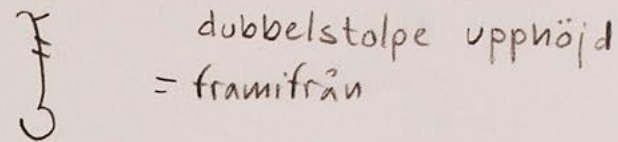 dubbelstolpe upphöjd
= framifrån